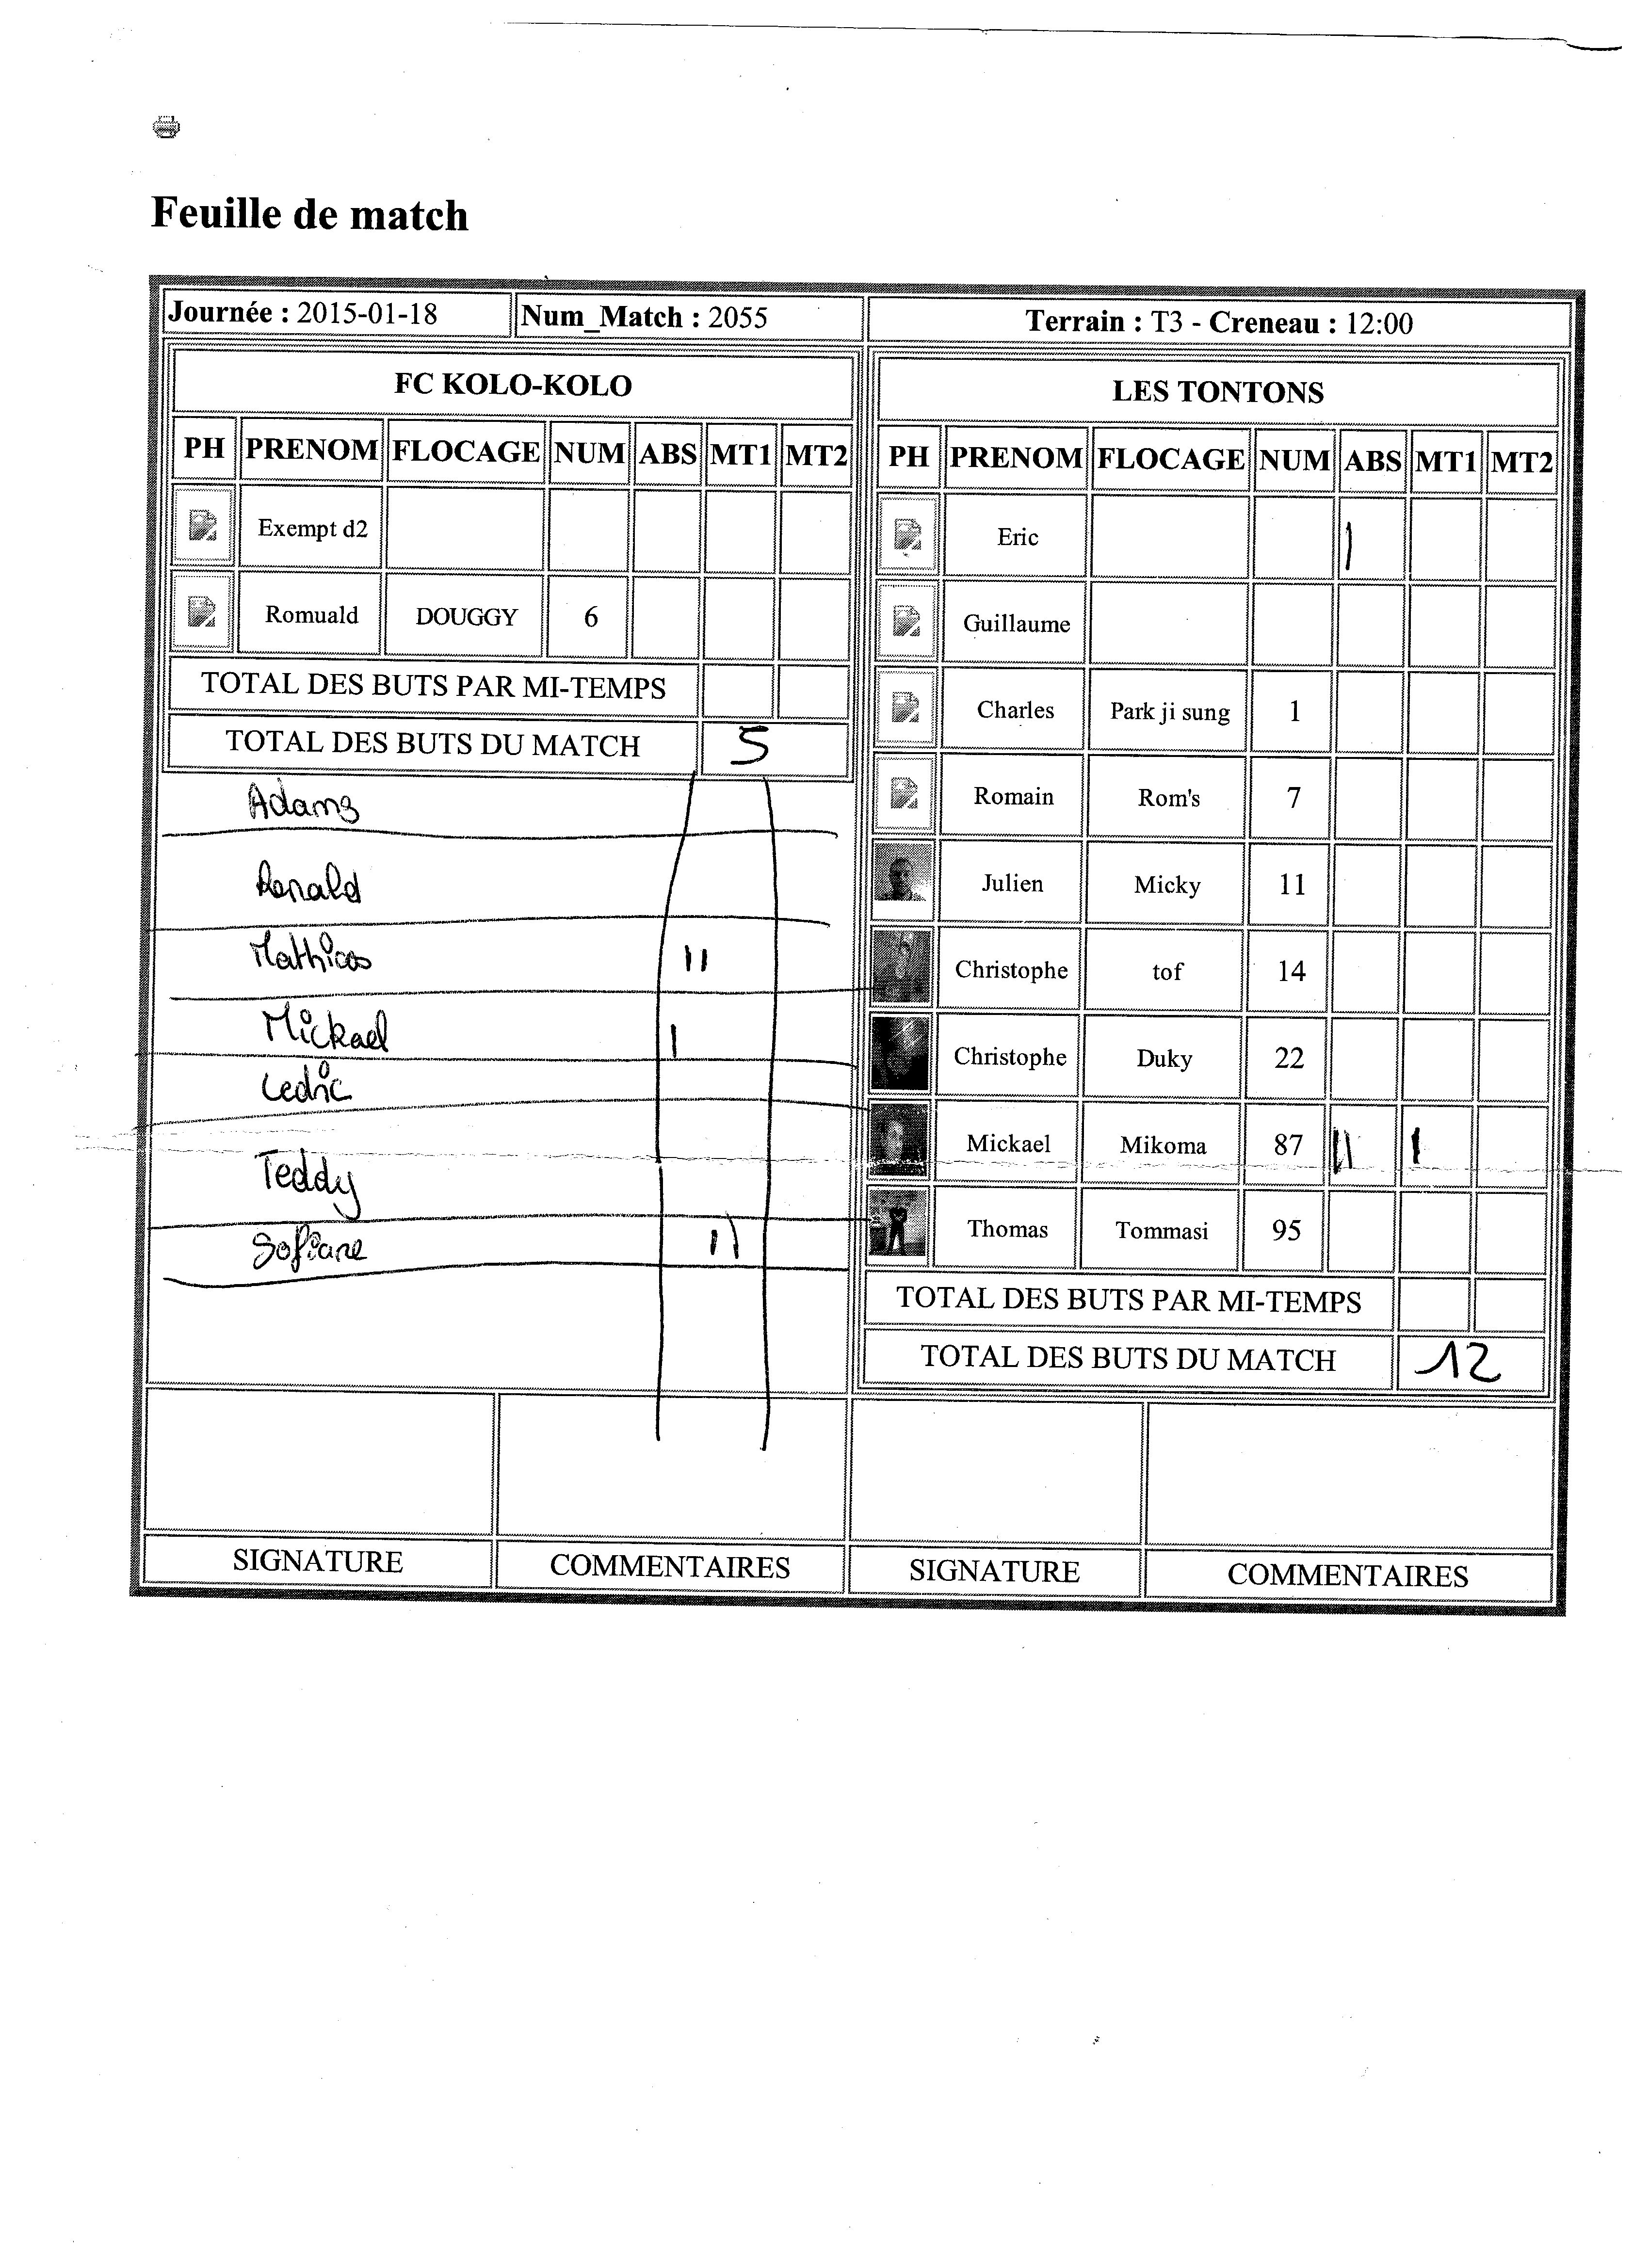 Feuille de match
Journée : 2015-01-18 Num_Match : 2055 Terrain : T3 - Creneau : 12:00
FC KOLO-KOLO
PH PRENOM FLOCAGE NUM ABS MT1 MT2
Exempt d2
Romuald DOUGGY 6
TOTAL DES BUTS PAR MI-TEMPS
TOTAL DES BUTS DU MATCH 5
Adams
Ronald
Mathias II
Mickael I
Cedric
Teddy
Sofiane II
LES TONTONS
PH PRENOM FLOCAGE NUM ABS MT1 MT2
Eric I
Guillaume
Charles Park ji sung 1
Romain Rom's 7
Julien Micky 11
Christophe tof 14
Christophe Duky 22
Mickael Mikoma 87 II I
Thomas Tommasi 95
TOTAL DES BUTS PAR MI-TEMPS
TOTAL DES BUTS DU MATCH 12
SIGNATURE COMMENTAIRES SIGNATURE COMMENTAIRES